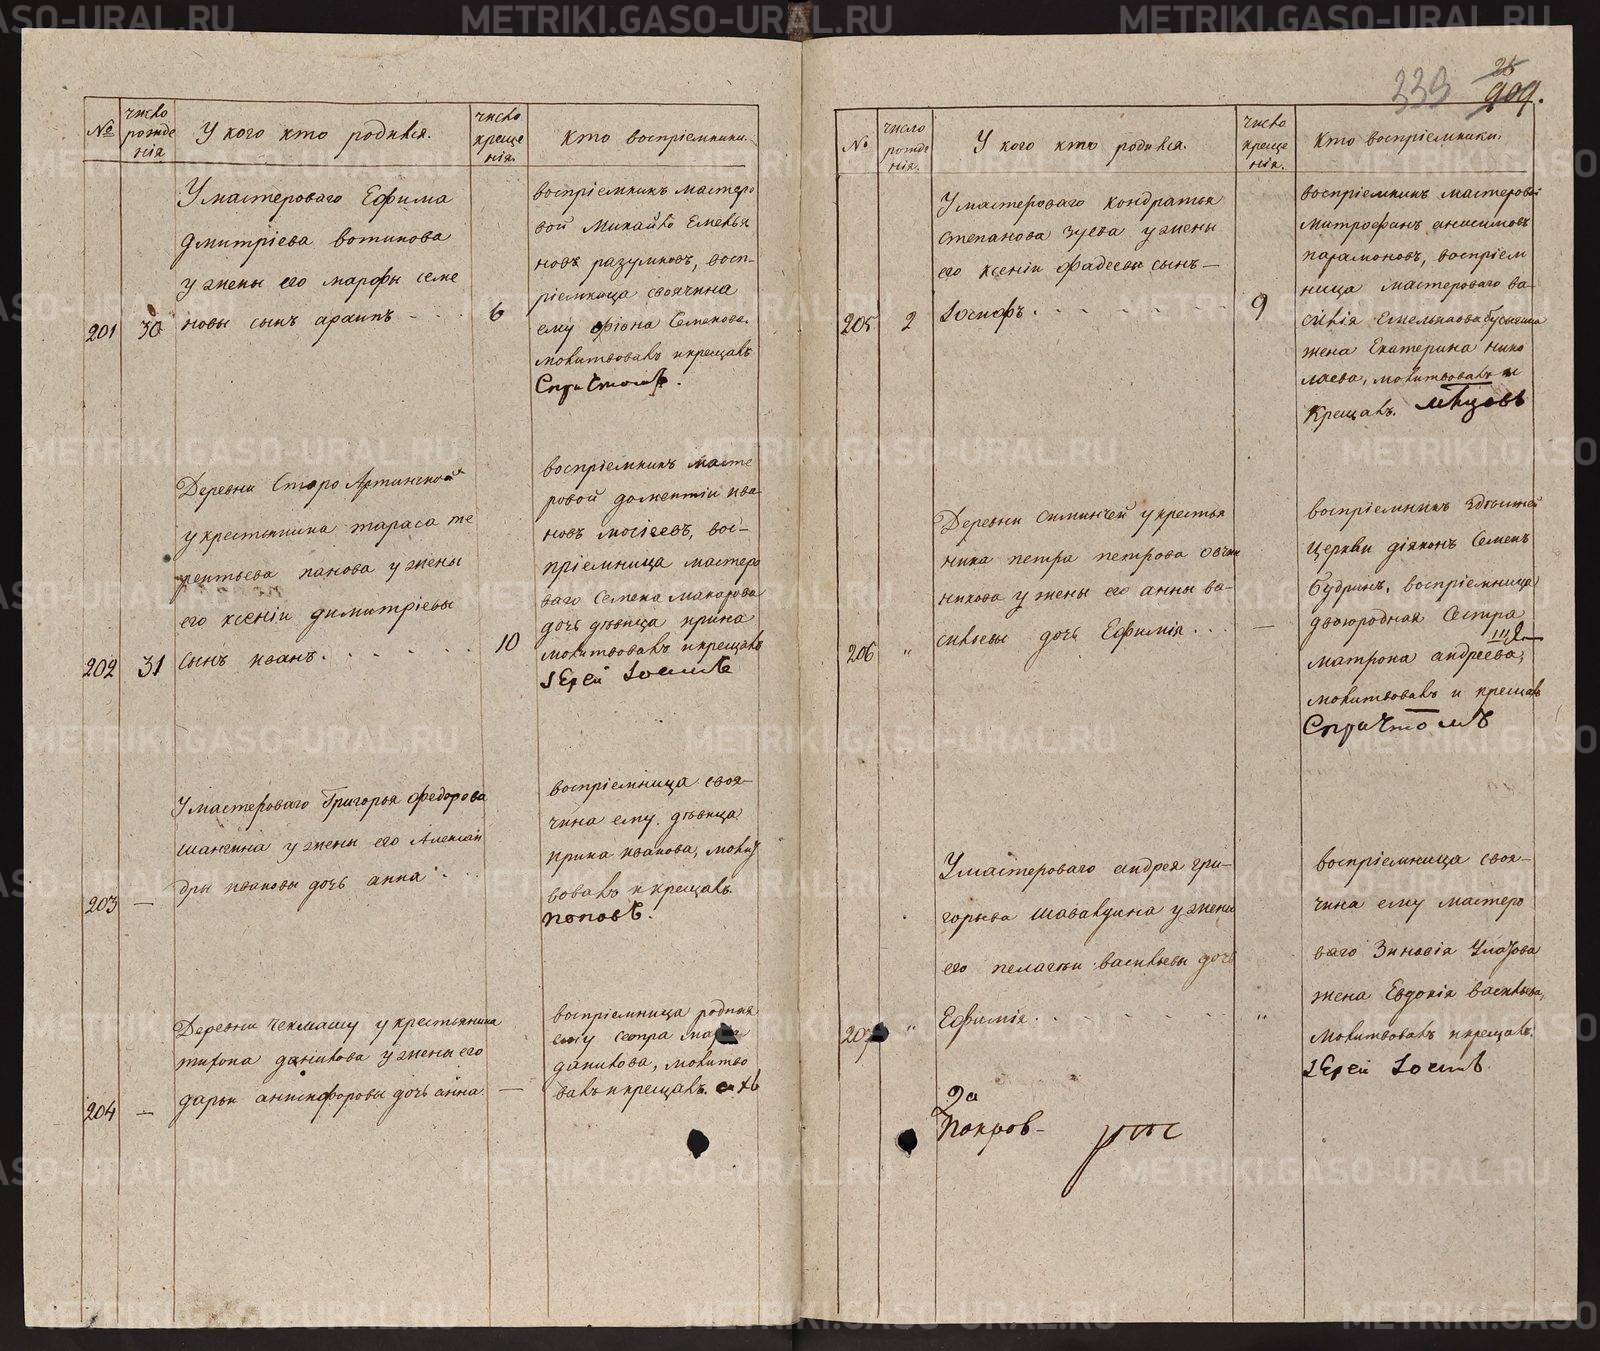 METRIKI.GASO-URAL.RU
333
25
909.
№
число рожде нія
У кого кто родился.
число креще нія.
Кто воспріемники.
201
30
У мастероваго Ефима
Дмитріева Вотинова
у жены его Марфы Семе
новы сынъ Архипъ - . .
6
воспріемникъ мастеро
вой Михайло Емелья
новъ Разумковъ, восп-
ріемница своячина
ему Фіона Семенова.
молитвовалъ и крещалъ
202
31
Деревни Старо Артинской
у крестьянина Тараса Те
рентьева Панова у жены
его Ксеніи Димитріевы
сынъ Иванъ. . . . . .
10
воспріемникъ масте
ровой Доментіи Ива
новъ Моісеевъ, вос-
пріемница мастеро
ваго Семена Макарова
дочь дѣвица Ирина
молитвовалъ и крещалъ
Іерей Іосифъ
203
—
У мастероваго Григорья Федорова
Шангина у жены его Алексан
дры Ивановы дочь Анна . .
воспріемница своя-
чина ему дѣвица
Ирина Иванова, молит
вовалъ и крещалъ.
Поповъ.
204
—
Деревни Чекмашу у крестьянина
Тихона Данилова у жены его
Дарьи Аникифоровы дочь Анна.
—
воспріемница родная
ему сестра Марфа
Данилова, молитво
валъ и крещалъ.
№
число рожде нія.
У кого кто родился.
число креще нія.
Кто воспріемники.
205
2
У мастероваго Кондратья
Степанова Зуева у жены
его Ксеніи Фадеевы сынъ —
Іосифъ. . . . . . . .
9
воспріемникъ мастеровой
Митрофанъ Анисимовъ
Парамоновъ, воспріем
ница мастероваго Ва-
силія Емельянова
жена Екатерина Нико
лаева, молитвовалъ и
крещалъ.
206
"
Деревни Симинчей у крестья
нина Петра Петрова Овчин
никова у жены его Анны Ва-
сильевы дочь Ефимія. . .
—
воспріемникъ здѣшней
церкви діяконъ Семенъ
Будринъ, воспріемница
двоюродная сестра
Матрона Андреева,
молитвовалъ и крещалъ
207
"
У мастероваго Андрея Гри-
горьева Шавалдина у жены
его Пелагеи Васильевы дочь
Ефимія. . . . . . . .
"
воспріемница своя-
чина ему мастеро
ваго Зиновія
жена Евдокія Васильева,
молитвовалъ и крещалъ.
Іерей Іосифъ.
2а
Покров-